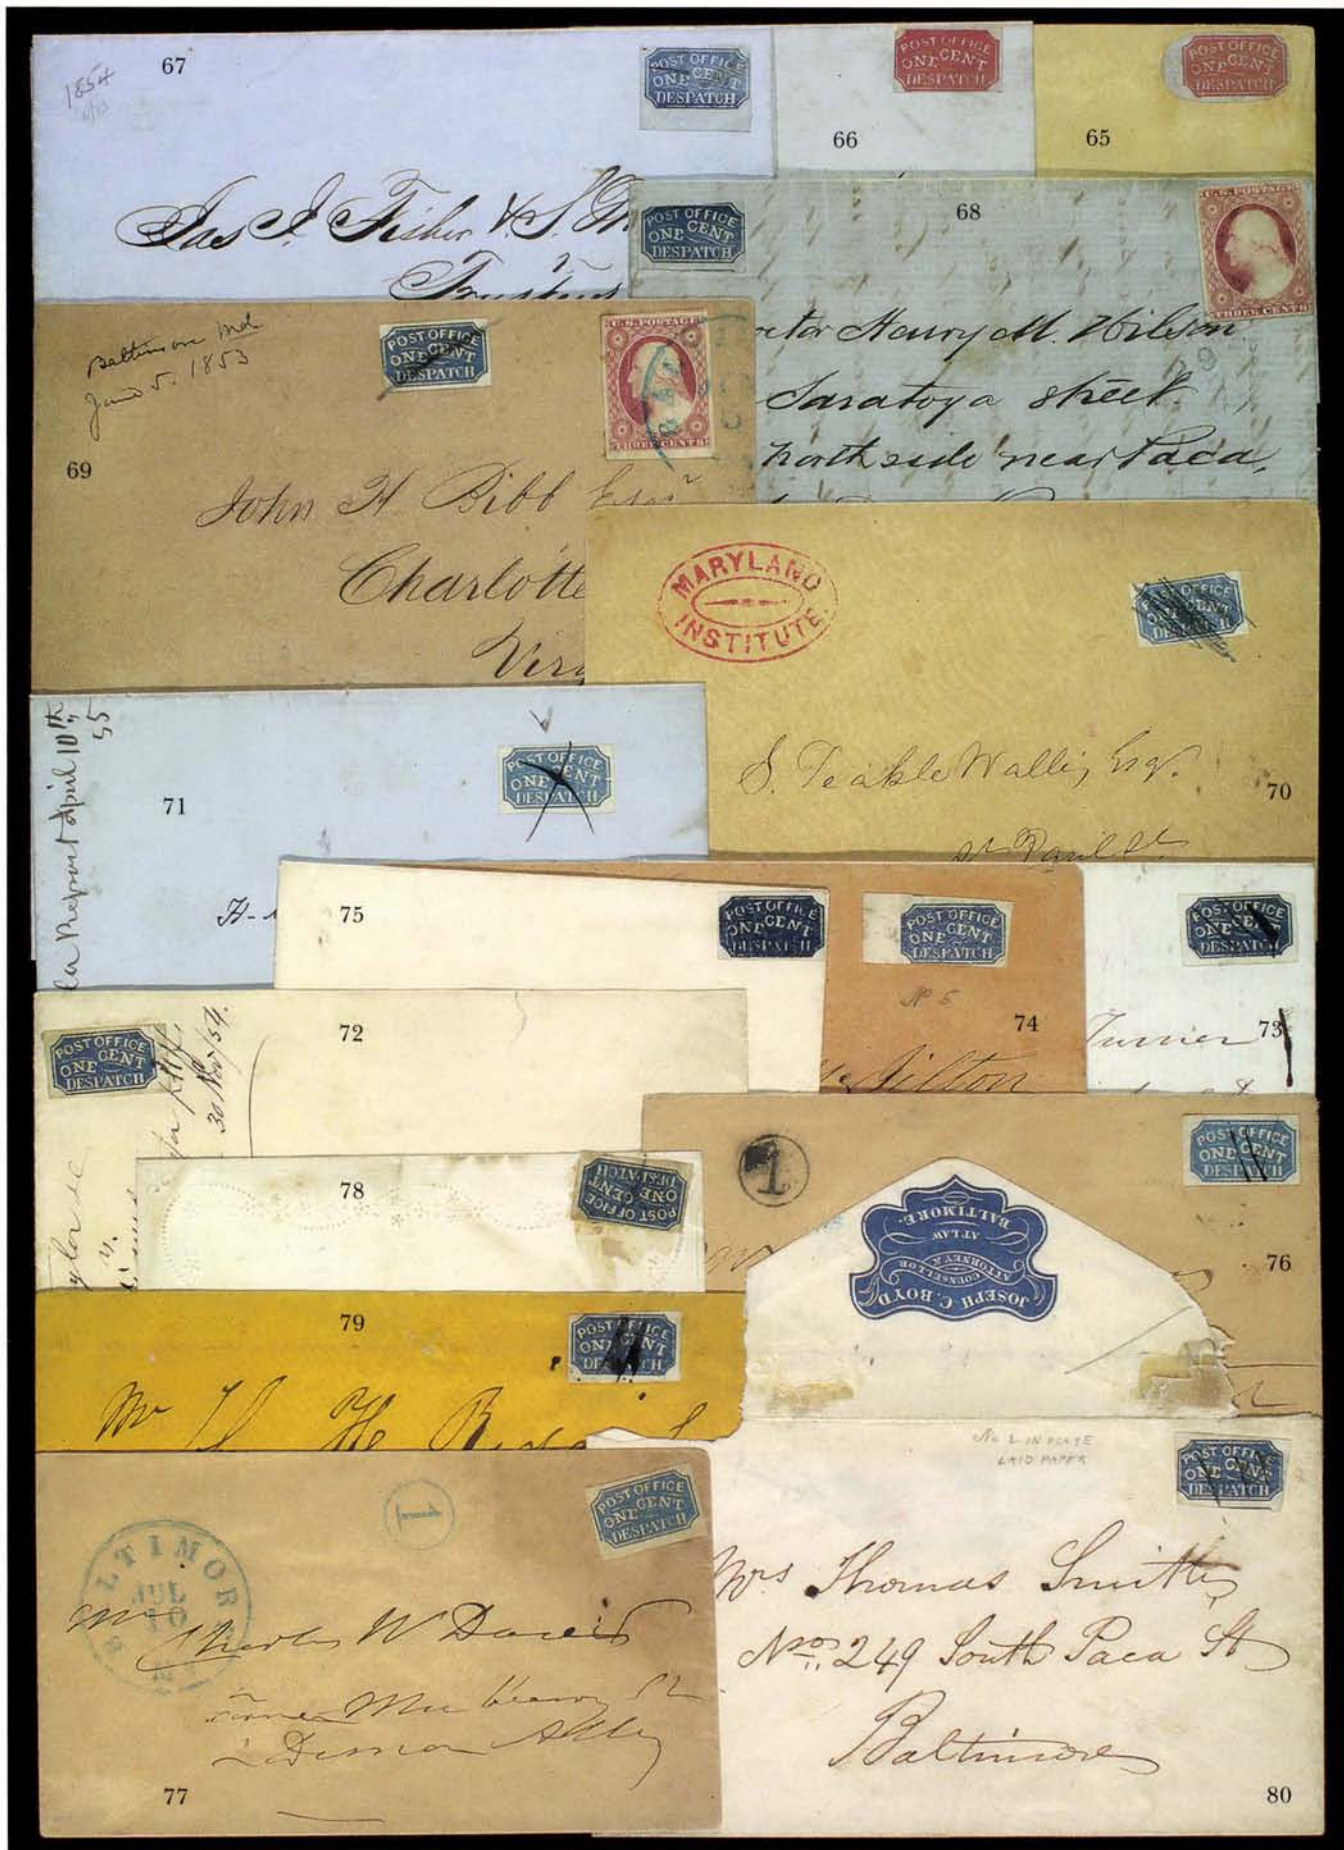 67
1854
POST OFFICE
ONE CENT
DESPATCH
Jas I. Fisher & S.
Trustees
66
POST OFFICE
ONE CENT
DESPATCH
65
POST OFFICE
ONE CENT
DESPATCH
68
POST OFFICE
ONE CENT
DESPATCH
U.S. POSTAGE
THREE CENTS
Henry M. Wilson
9
Saratoga street
north side near Paca,
69
Baltimore Md.
June 5. 1853
POST OFFICE
ONE CENT
DESPATCH
U.S. POSTAGE
THREE CENTS
John H Bibb Esqr
Charlotte
Vir
70
MARYLAND
INSTITUTE.
POST OFFICE
ONE CENT
DESPATCH
S. Teakle Wallis, Esq.
St. Paul St
71
Report April 10th
55
POST OFFICE
ONE CENT
DESPATCH
H-
75
POST OFFICE
ONE CENT
DESPATCH
74
POST OFFICE
ONE CENT
DESPATCH
No 5
Wilton
73
POST OFFICE
ONE CENT
DESPATCH
Turner
72
POST OFFICE
ONE CENT
DESPATCH
30 Nov/54.
78
POST OFFICE
ONE CENT
DESPATCH
76
1
POST OFFICE
ONE CENT
DESPATCH
JOSEPH C. BOYD
ATTORNEY &
COUNSELLOR
AT LAW
BALTIMORE.
79
POST OFFICE
ONE CENT
DESPATCH
Mr
77
1
POST OFFICE
ONE CENT
DESPATCH
BALTIMORE
JUL
10
Mr
Charles W
Corner
Alley
80
No 2 IN PLATE
LAID PAPER
POST OFFICE
ONE CENT
DESPATCH
Mrs Thomas Smith
No. 249 South Paca St
Baltimore